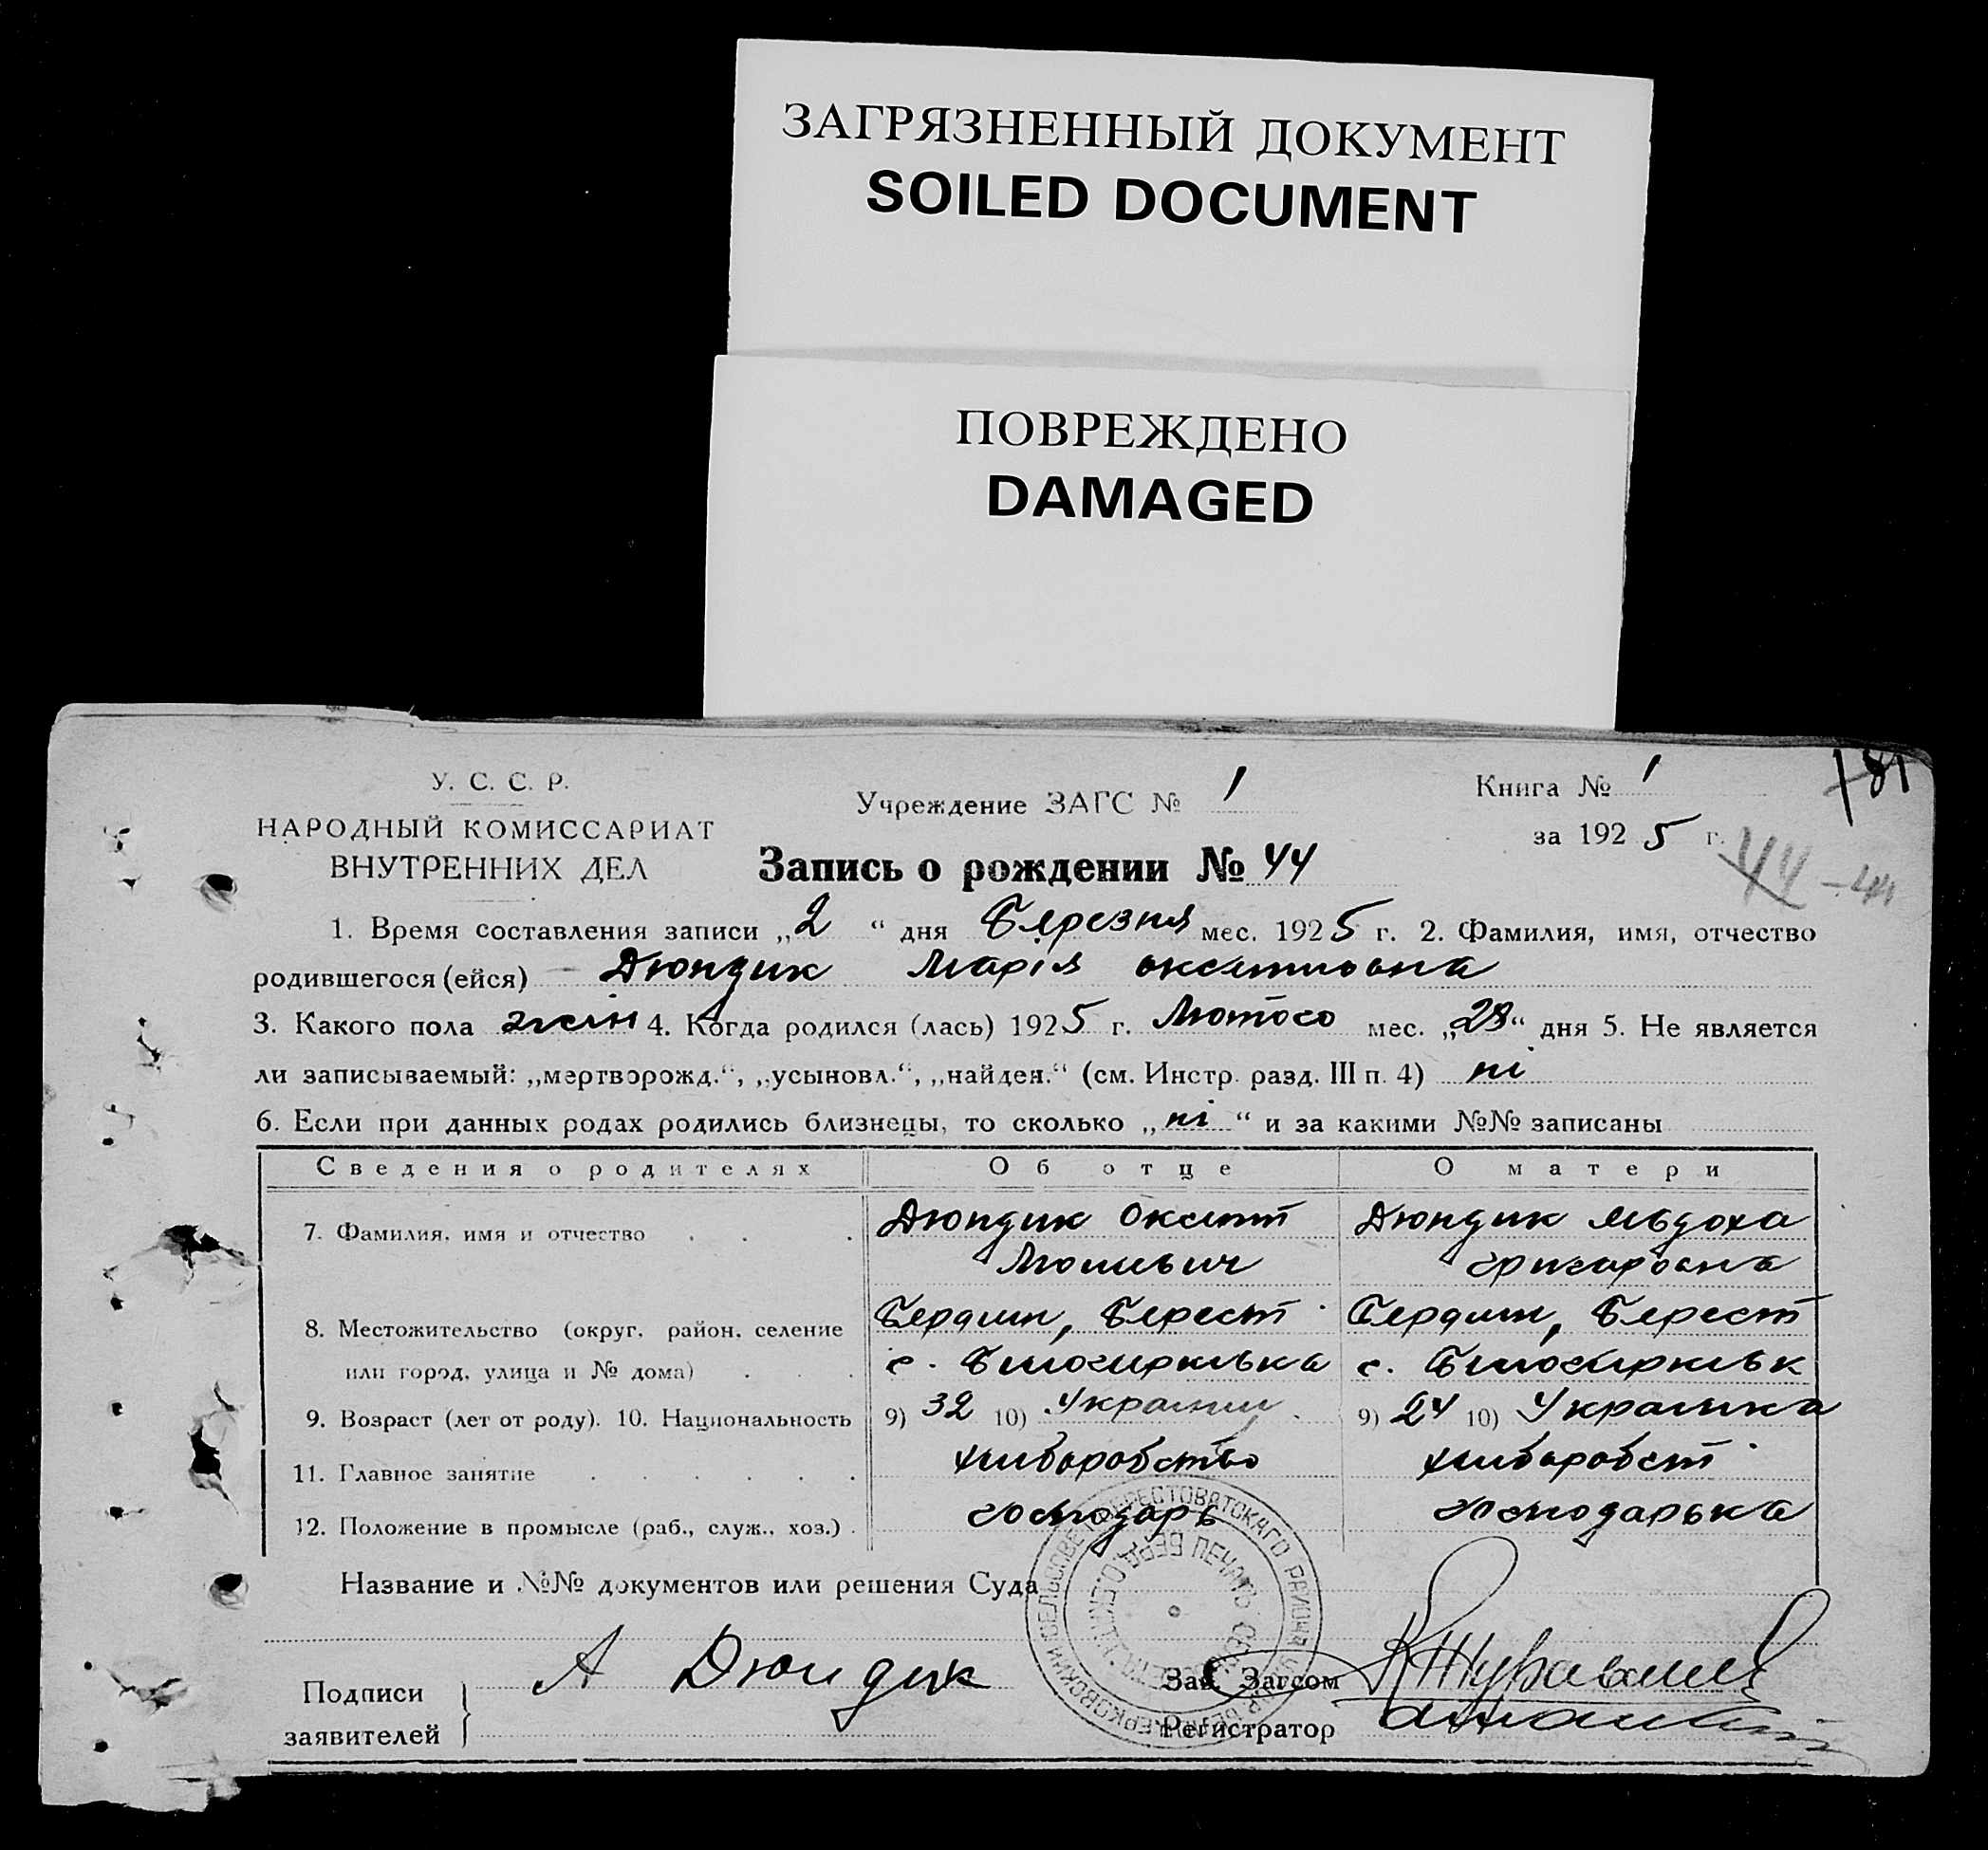 ЗАГРЯЗНЕННЫЙ ДОКУМЕНТ
SOILED DOCUMENT
ПОВРЕЖДЕНО
DAMAGED
181
У. С. С. Р.
НАРОДНЫЙ КОМИССАРИАТ
ВНУТРЕННИХ ДЕЛ
Учреждение ЗАГС № 1
Книга № 1
за 1925 г.
44 - 44
Запись о рождении № 44
1. Время составления записи „2“ дня Березня мес. 1925 г. 2. Фамилия, имя, отчество
родившегося (ейся) Дюндик Марія
3. Какого пола жін 4. Когда родился (лась) 1925 г. Лютого мес. „28“ дня 5. Не является
ли записываемый: „мертворожд.“, „усыновл.“, „найден.“ (см. Инстр. разд. III п. 4) ні
6. Если при данных родах родились близнецы, то сколько „ні“ и за какими №№ записаны
Сведения о родителях Об отце О матери
7. Фамилия, имя и отчество Дюндик Оксент Дюндик Явдоха
Григоровна
8. Местожительство (округ, район, селение Бердян, Берест Бердян, Берест
или город, улица и № дома) с. с.
9. Возраст (лет от роду). 10. Национальность 9) 32 10) 9) 24 10) Українка
11. Главное занятие хліборобство хлібороbст
12. Положение в промысле (раб., служ., хоз.) господарь господарька
Название и №№ документов или решения Суда
Подписи
заявителей
А Дюндик
Зав. Загсом
Регистратор